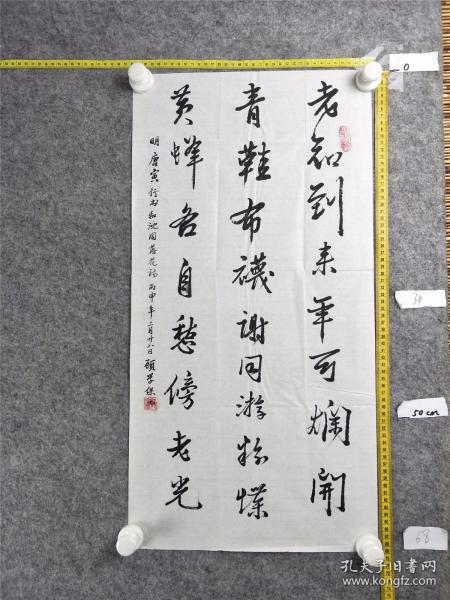 老知到来年可烂開
青鞋布襪謝同游粉蝶
黄蜂各自愁傍老光
明唐寅行书和沈周落花詩 丙申年二月廿八日 顾学
0
50cm
68
孔夫子旧书网
www.kongfz.com